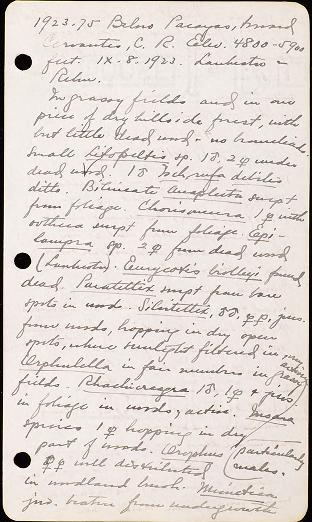 1923.75 Below Pacayas, toward
Cervantes, C. R. Elev. 4800-5900
feet. IX-8.1923. Lankester &
Rehn.
In grassy fields and in one
piece of dry hillside forest, with
but little dead wood - no bromeliads.
Small Lissopeltis sp. 1♂, 2♀ under
dead wood. 1♂ Ischnura debilis
ditto. Bilineate Anaplecta swept
from foliage. Chorisoneura 1♀ with
ootheca swept from foliage. Epi-
lampra sp. 2♀ from dead wood
(Lankester). Eurycotis biolleyi found
dead. Paratettix swept from bare
spots in woods. ♂♂, ♀♀, juvs.
from woods, hopping in dry open
spots, where sunlight filtered in, very active
Orphulella in fair numbers in grassy
fields. 1♂, 1♀ & juvs
in foliage in woods, active.
species 1♀ hopping in dry
part of woods. Orophus (particularly
♀♀ well distributed (males.
in woodland brush.
juv. beaten from undergrowth